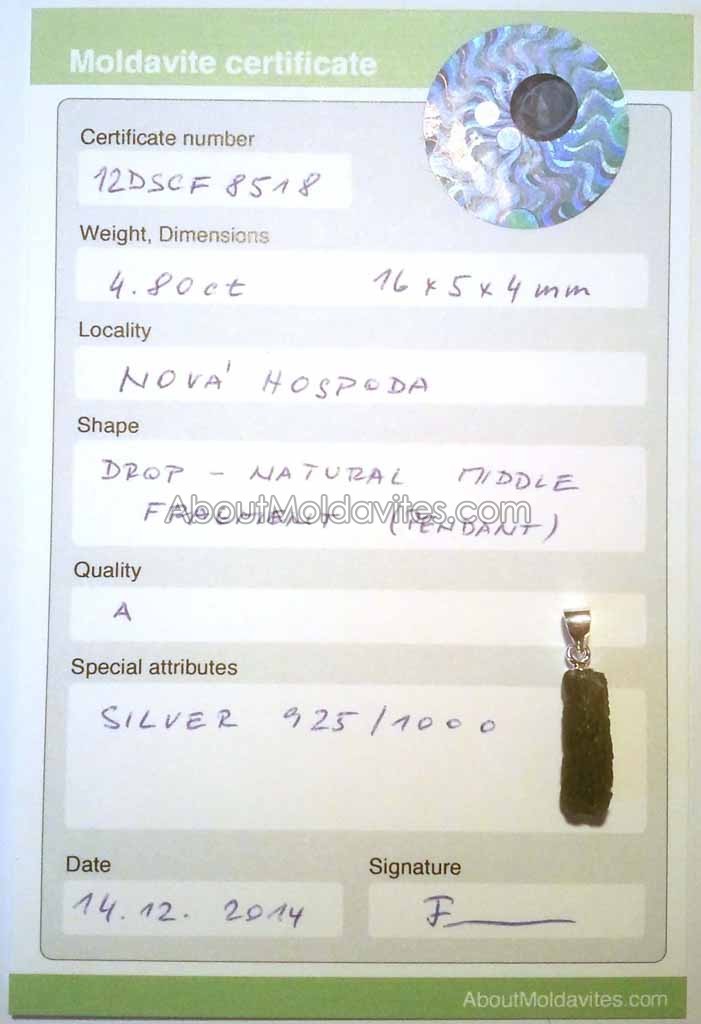 Moldavite certificate
Certificate number
12DSCF 8518
Weight, Dimensions
4.80ct 16 x 5 x 4 mm
Locality
NOVÁ HOSPODA
Shape
DROP - NATURAL MIDDLE
FRAGMENT (PENDANT)
AboutMoldavites.com
Quality
A
Special attributes
SILVER 925/1000
Date
14.12. 2014
Signature
AboutMoldavites.com